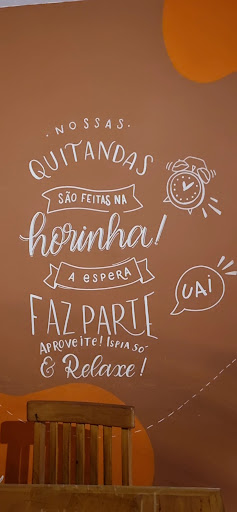 · NOSSAS ·
QUITANDAS
SÃO FEITAS NA
horinha!
A ESPERA
FAZ PARTE
APROVEITE! ISPIA SÓ
& Relaxe!
UAI